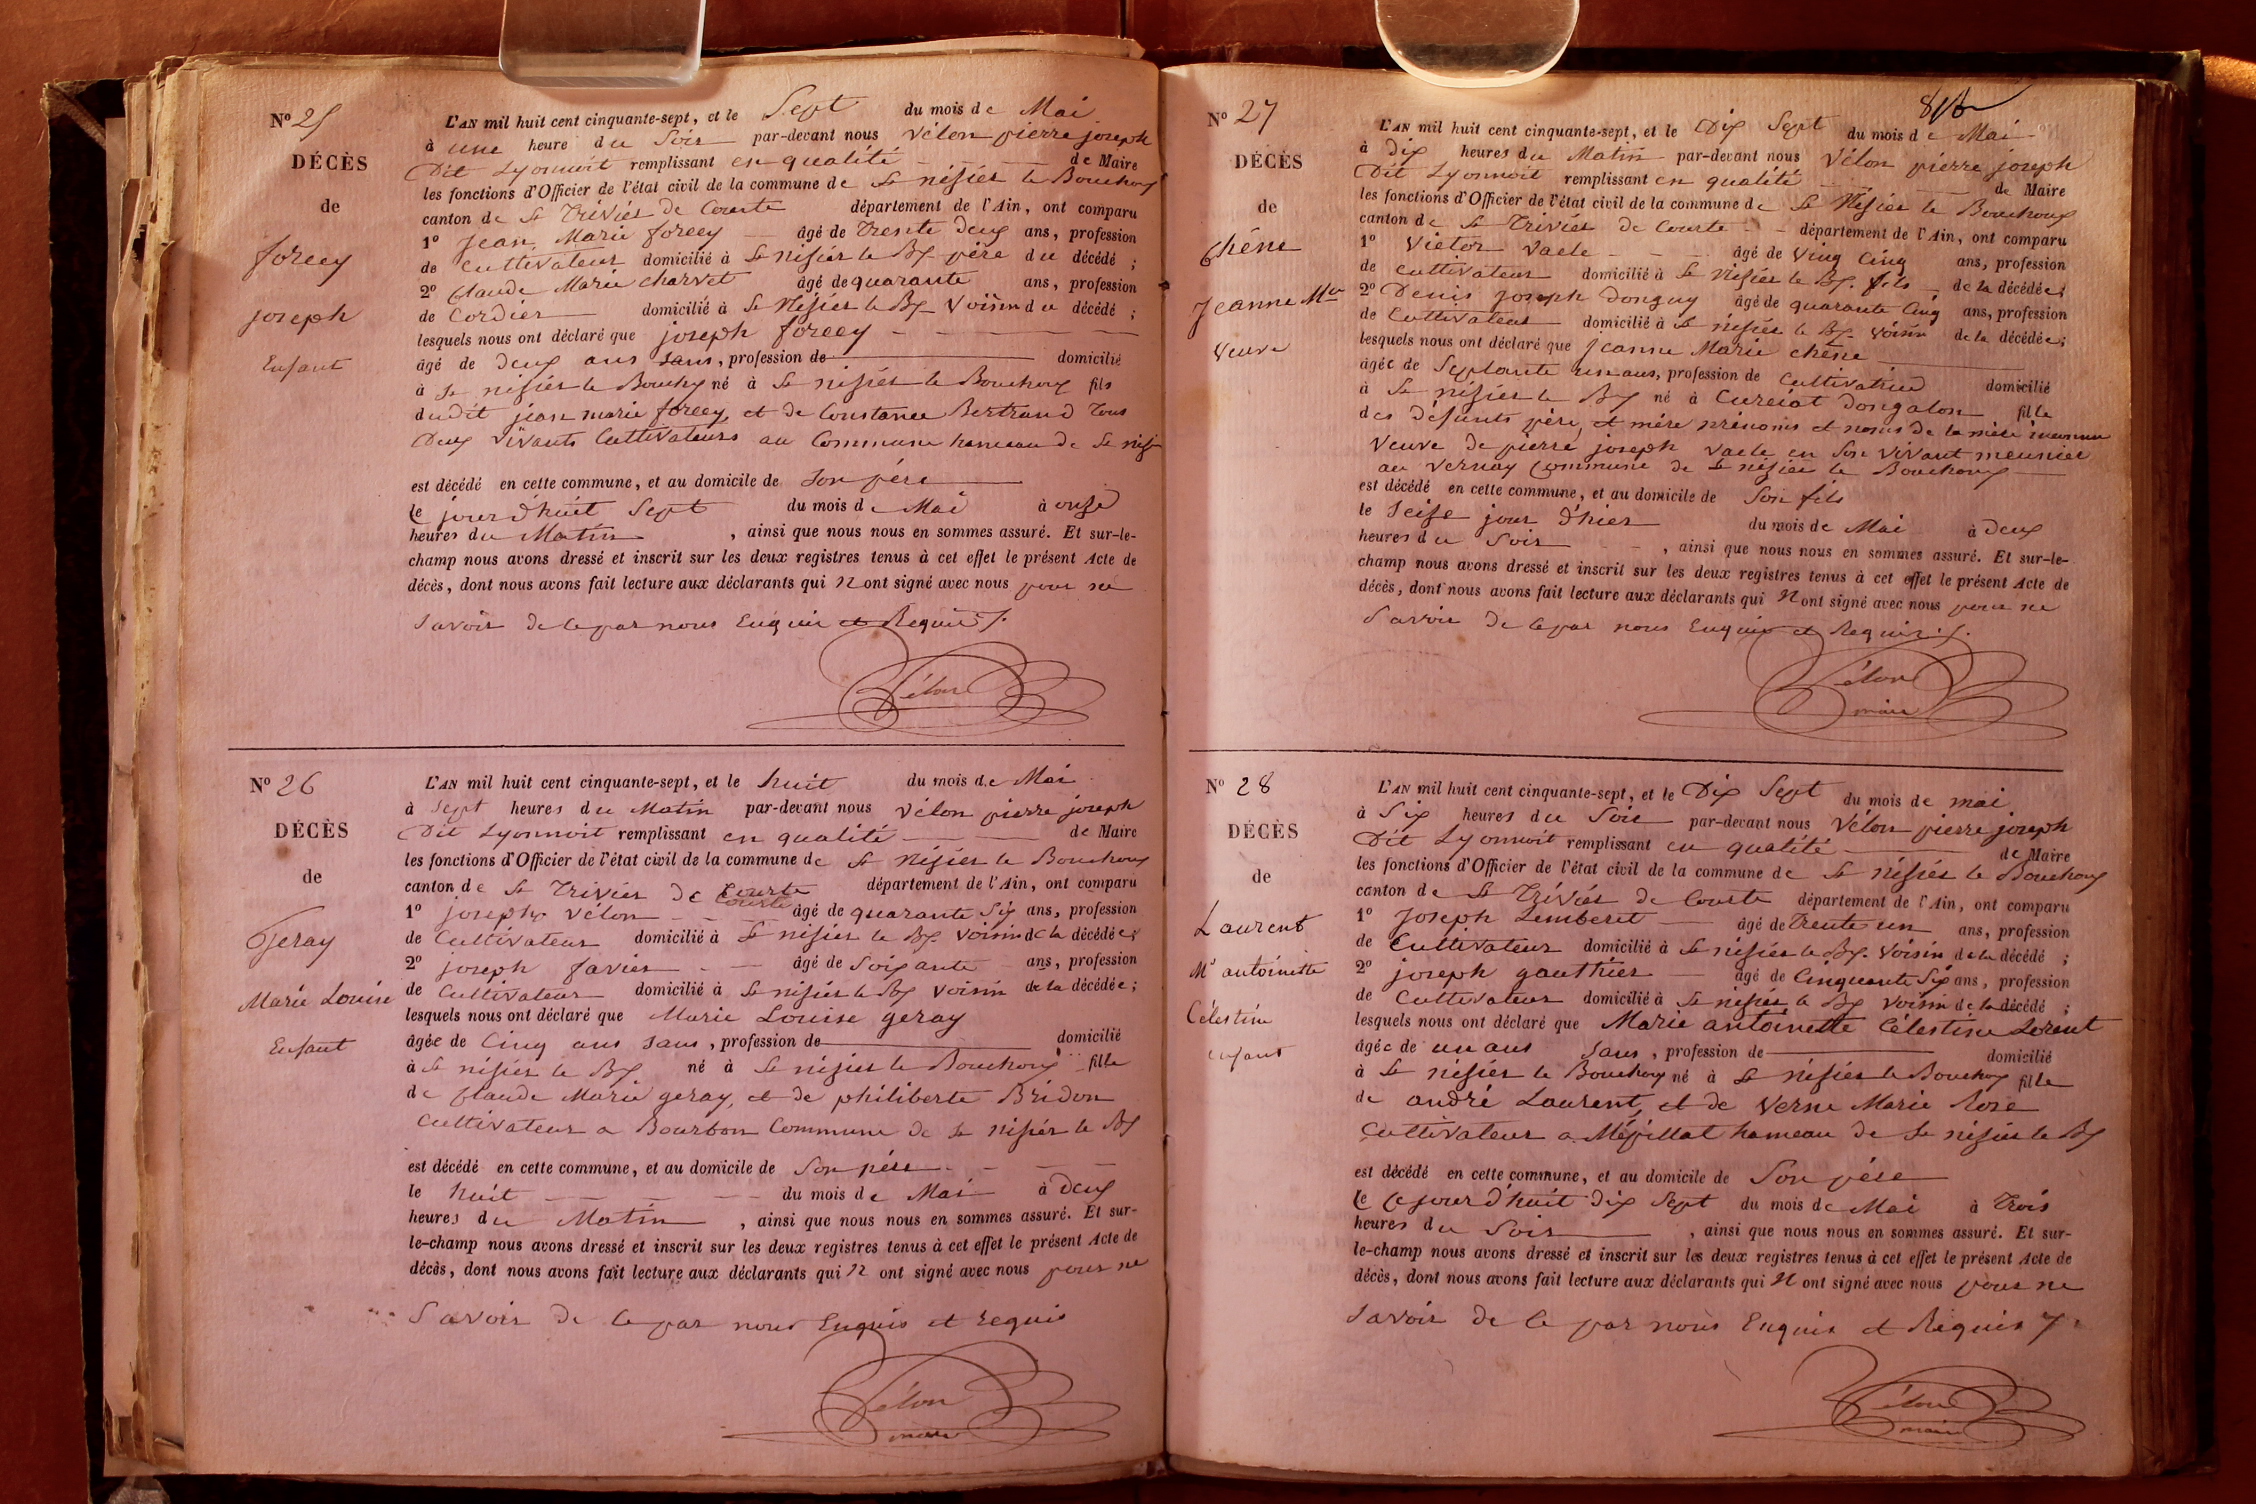 Nº 25
DÉCÈS
de
forey
joseph
Enfant
L'AN mil huit cent cinquante-sept, et le Sept du mois de Mai
à une heure du Soir par-devant nous Vélon pierre joseph
Dit Lyonnoit remplissant en qualité de Maire
les fonctions d'Officier de l'état civil de la commune de St nisier le Bouchoux
canton de St Trivier de Courte département de l'Ain, ont comparu
1º Jean Marie forey âgé de Trente deux ans, profession
de Cultivateur domicilié à St nisier le Bx père du décédé ;
2º Claude Marie Charvet âgé de quarante ans, profession
de Cordier domicilié à St Nisier le Bx Voisin du décédé ;
lesquels nous ont déclaré que joseph forey
âgé de Deux ans sans, profession de domicilié
à St nisier le Bouchx né à St nisier le Bouchoux fils
dudit jean marie forey, et de Constance Bertrand Tous
Deux Vivants Cultivateurs au Commune hameau de St nisier
est décédé en cette commune, et au domicile de Son père
le jourd'huit Sept du mois de Mai à onze
heures du Matin , ainsi que nous nous en sommes assuré. Et sur-le-
champ nous avons dressé et inscrit sur les deux registres tenus à cet effet le présent Acte de
décès, dont nous avons fait lecture aux déclarants qui n'ont signé avec nous pour ne
Savoir de ce par nous Enquis et Requis
Vélon
Nº 26
DÉCÈS
de
Geray
Marie Louise
Enfant
L'AN mil huit cent cinquante-sept, et le huit du mois de Mai
à Sept heures du Matin par-devant nous Vélon pierre joseph
Dit Lyonnoit remplissant en qualité de Maire
les fonctions d'Officier de l'état civil de la commune de St Nisier le Bouchoux
canton de St Trivier de Courte département de l'Ain, ont comparu
1º joseph Vélon âgé de quarante Six ans, profession
de Cultivateur domicilié à St nisier le Bx Voisin de la décédée ;
2º joseph favier âgé de Soixante ans, profession
de Cultivateur domicilié à St nisier le Bx Voisin de la décédée ;
lesquels nous ont déclaré que Marie Louise geray
âgée de Cinq ans sans , profession de domicilié
à St nisier le Bx né à St nisier le Bouchoux fille
de Claude Marie geray, et de philiberte Bridon
Cultivateur a Bourbon Commune de St nisier le Bx
est décédé en cette commune, et au domicile de Son père
le huit du mois de Mai à Deux
heures du Matin , ainsi que nous nous en sommes assuré. Et sur-
le-champ nous avons dressé et inscrit sur les deux registres tenus à cet effet le présent Acte de
décès, dont nous avons fait lecture aux déclarants qui n'ont signé avec nous pour ne
Savoir de ce par nous Enquis et requis
Vélon
maire
Nº 27
DÉCÈS
de
Chêne
Jeanne Mie
Veuve
L'AN mil huit cent cinquante-sept, et le Dix Sept du mois de Mai
à Dix heures du Matin par-devant nous Vélon pierre joseph
Dit Lyonnoit remplissant en qualité de Maire
les fonctions d'Officier de l'état civil de la commune de St Nisier le Bouchoux
canton de St Trivier de Courte département de l'Ain, ont comparu
1º Victor Vacle âgé de Ving Cinq ans, profession
de Cultivateur domicilié à St Nisier le Bx. fils de la décédée ;
2º Denis Joseph Donguy âgé de quarante Cinq ans, profession
de Cultivateur domicilié à St nisier le Bx. Voisin de la décédée ;
lesquels nous ont déclaré que Jeanne Marie Chêne
âgée de Septante un ans, profession de Cultivatrice domicilié
à St nisier le Bx né à Curciat Dongalon fille
des Défunts père, et mère prénoms et noms de la mère inconnue
Veuve de pierre joseph Vacle en Son Vivant meunier
au Vernay Commune de St nisier le Bouchoux
est décédé en cette commune, et au domicile de Son fils
le Seize jour d'hier du mois de Mai à Deux
heures du Soir , ainsi que nous nous en sommes assuré. Et sur-le-
champ nous avons dressé et inscrit sur les deux registres tenus à cet effet le présent Acte de
décès, dont nous avons fait lecture aux déclarants qui n'ont signé avec nous pour ne
Savoir de ce par nous Enquis et Requis
Vélon
maire
Nº 28
DÉCÈS
de
Laurent
Mie antoinette
Célestine
enfant
L'AN mil huit cent cinquante-sept, et le Dix Sept du mois de mai
à Six heures du Soir par-devant nous Vélon pierre joseph
Dit Lyonnoit remplissant en qualité de Maire
les fonctions d'Officier de l'état civil de la commune de St nisier le Bouchoux
canton de St Trivier de Courte département de l'Ain, ont comparu
1º Joseph Lemberet âgé de Trente un ans, profession
de Cultivateur domicilié à St nisier le Bx. Voisin de la décédé ;
2º joseph gauthier âgé de Cinquante Six ans, profession
de Cultivateur domicilié à St nisier le Bx Voisin de la décédé ;
lesquels nous ont déclaré que Marie antoinette Célestine Lorent
âgée de un ans Sans , profession de domicilié
à St nisier le Bouchoux né à St nisier le Bouchoux fille
de andré Laurent, et de Verne Marie Rose
Cultivateur a Mépillat hameau de St nisier le Bx
est décédé en cette commune, et au domicile de Son père
le Cejourd'huit Dix Sept du mois de Mai à Trois
heures du Soir , ainsi que nous nous en sommes assuré. Et sur-
le-champ nous avons dressé et inscrit sur les deux registres tenus à cet effet le présent Acte de
décès, dont nous avons fait lecture aux déclarants qui n'ont signé avec nous pour ne
Savoir de ce par nous Enquis et Requis
Vélon
maire